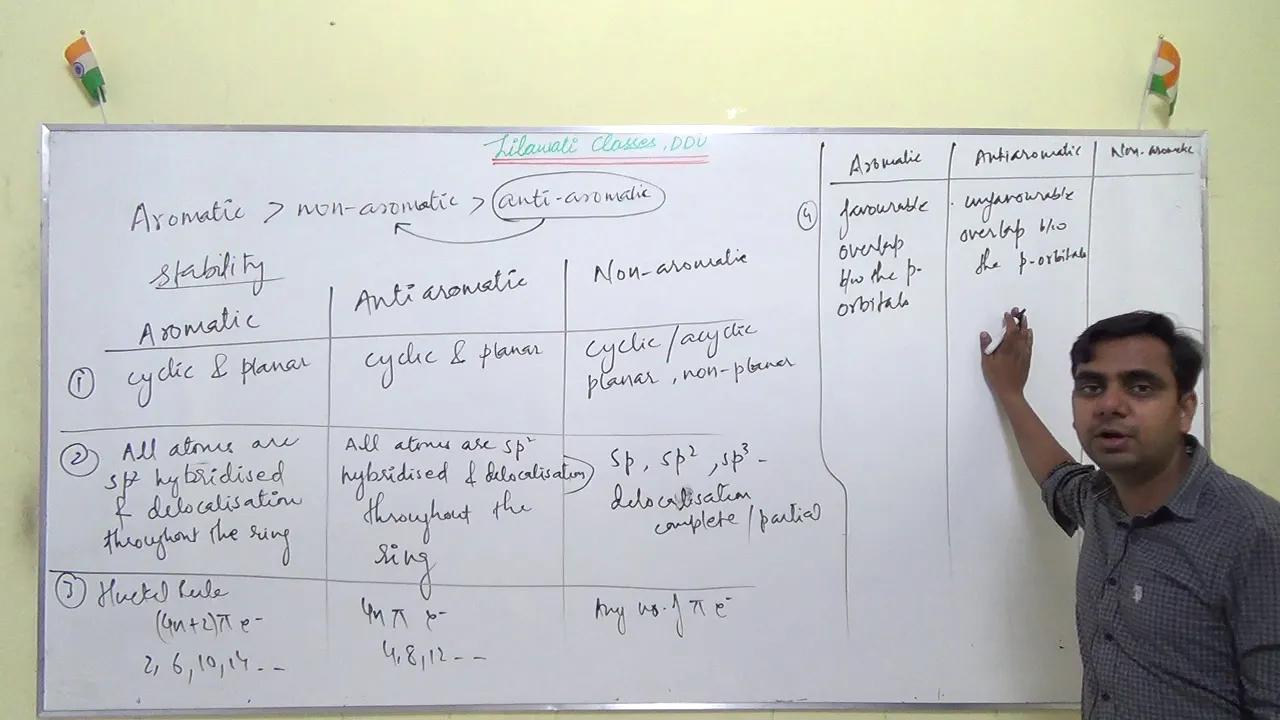 Lilawati Classes, DDU
Aromatic > non-aromatic > anti-aromatic
stability
Aromatic
Antiaromatic
Non-aromatic
① cyclic & planar
cyclic & planar
cyclic/acyclic
planar, non-planar
② All atoms are
sp² hybridised
& delocalisation
throughout the ring
All atoms are sp²
hybridised & delocalisation
throughout the
ring
sp, sp², sp³ -
delocalisation
complete/partial
③ Huckel Rule
(4n+2)π e⁻
2, 6, 10, 14 - -
4n π e⁻
4, 8, 12 - -
Any no. of π e⁻
Aromatic
Antiaromatic
Non-aromatic
④ favourable
overlap
b/w the p-
orbitals
unfavourable
overlap b/w
the p-orbitals